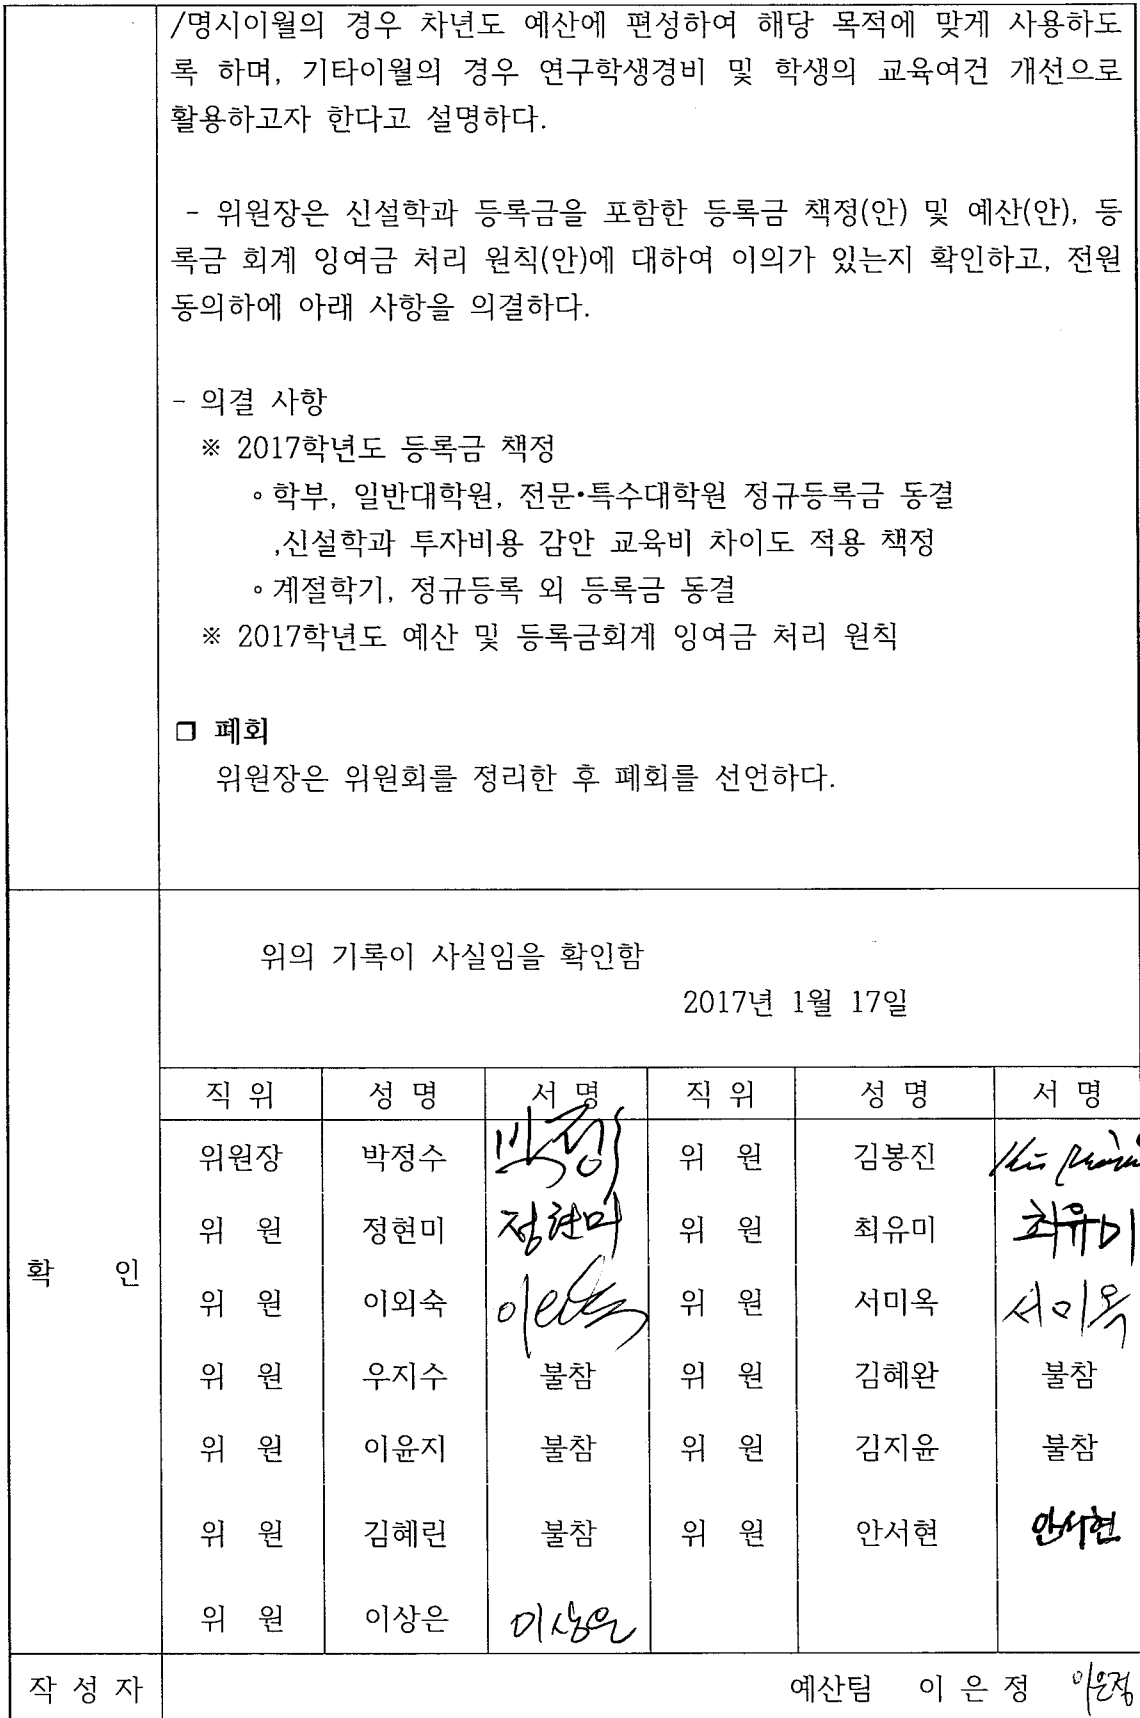 /명시이월의 경우 차년도 예산에 편성하여 해당 목적에 맞게 사용하도
록 하며, 기타이월의 경우 연구학생경비 및 학생의 교육여건 개선으로
활용하고자 한다고 설명하다.
- 위원장은 신설학과 등록금을 포함한 등록금 책정(안) 및 예산(안), 등
록금 회계 잉여금 처리 원칙(안)에 대하여 이의가 있는지 확인하고, 전원
동의하에 아래 사항을 의결하다.
- 의결 사항
※ 2017학년도 등록금 책정
∘학부, 일반대학원, 전문•특수대학원 정규등록금 동결
,신설학과 투자비용 감안 교육비 차이도 적용 책정
∘계절학기, 정규등록 외 등록금 동결
※ 2017학년도 예산 및 등록금회계 잉여금 처리 원칙
❒ 폐회
위원장은 위원회를 정리한 후 폐회를 선언하다.
위의 기록이 사실임을 확인함
2017년 1월 17일
확 인
직 위 성 명 서 명 직 위 성 명 서 명
위원장 박정수 위 원 김봉진
위 원 정현미 정현미 위 원 최유미 최유미
위 원 이외숙 위 원 서미옥 서미옥
위 원 우지수 불참 위 원 김혜완 불참
위 원 이윤지 불참 위 원 김지윤 불참
위 원 김혜린 불참 위 원 안서현 안서현
위 원 이상은 이상은
작 성 자 예산팀 이 은 정 이은정